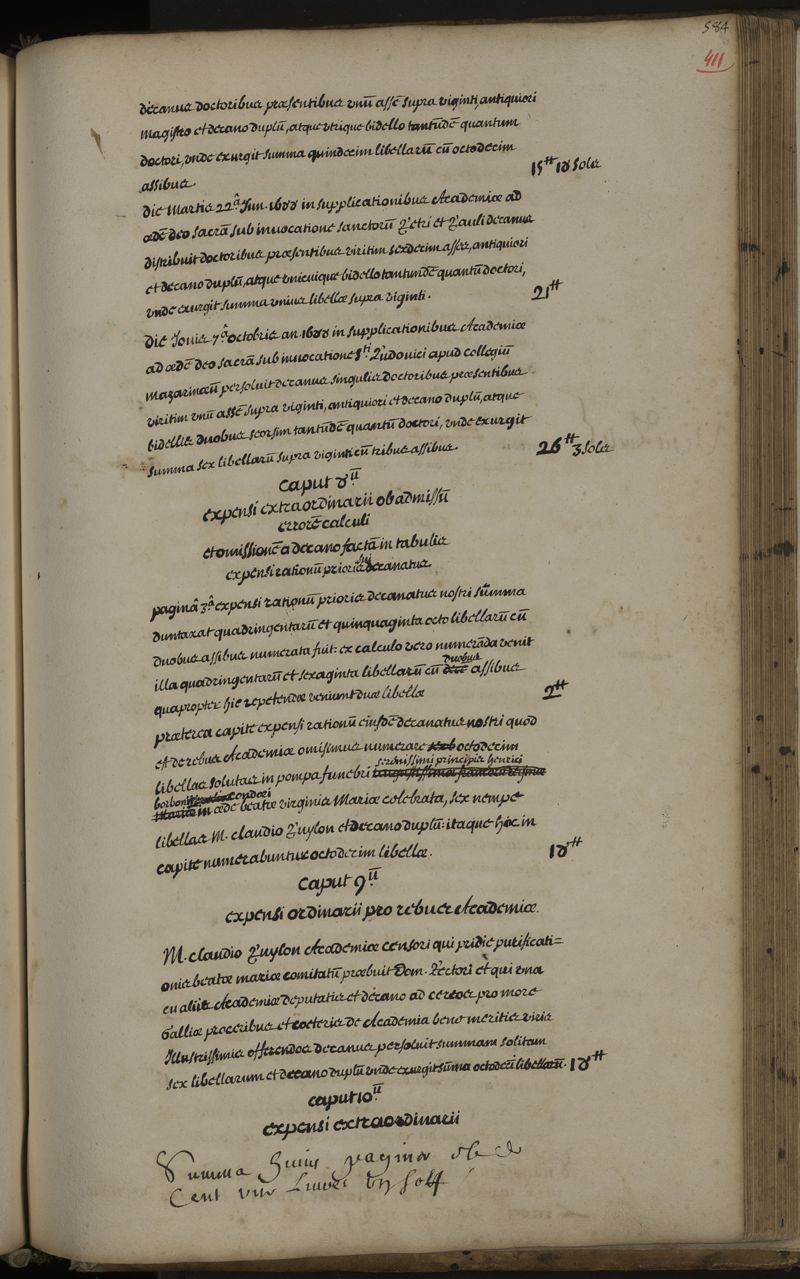 584
411
decanus doctoribus præsentibus vnū assē supra viginti, antiquiori
magistro et decano duplū, atque vtrique bidello tantūdē quantum
doctori, vnde exurgit summa quindecim libellarū cū octodecim
assibus.
15ᵗᵗ 18 sols
die Martis 22ᵃ Jun. 1688 in supplicationibus Academiæ ad
ædē deo sacrā sub inuocatione sanctorū Petri et Pauli decanus
distribuit doctoribus præsentibus viritim sexdecim asses, antiquiori
et decano duplū, atque vnicuique bidello tantundē quantū doctori,
vnde exurgit summa vnius libellæ supra viginti.
21ᵗᵗ
die Jouis 7ᵃ octobris an. 1688 in supplicationibus Academiæ
ad ædē deo sacrā sub inuocatione Sᵗⁱ Ludouici apud collegiū
Mazarinæū persoluit decanus singulis doctoribus præsentibus
viritim vnū assē supra viginti, antiquiori et decano duplū, atque
bidellis duobus seorsim tantūdē quantū doctori, vnde exurgit
summa sex libellarū supra viginti cū tribus assibus.
26ᵗᵗ 3 sols
Caput 8ū
expensi extraordinarii ob admissū
errorē calculi
et omissionē a decano factā in tabulis
expensi rationū prioris sui decanatus.
pagina 3ᵃ expensi rationū prioris decanatus nostri sūmma
duntaxat quadringentarū et quinquaginta octo libellarū cū
duobus assibus numerata fuit: ex calculo vero numerāda venit
illa quadringentarū et sexaginta libellarū cū decē duobus assibus
quapropter hic repetendæ veniunt duæ libellæ
2ᵗᵗ
præterea capite expensi rationū eiusdē decanatus nostri quod
est de rebus Academiæ omisimus numerare octodecim
libellas solutas in pompa funebri serenissimi principis henrici
borbonii condæi
in æde beatæ virginis Mariæ celebrata, sex nempe
libellas M. claudio Puylon et decano duplū: itaque hoc in
capite numerabuntur octodecim libellæ.
18ᵗᵗ
Caput 9ū
expensi ordinarii pro rebus Academiæ.
M. claudio Puylon Academiæ censori qui pridie purificati=
onis beatæ mariæ comitatū præbuit Dom. Rectori et qui vna
cu aliis Academiæ deputatis et decano ad cereos pro more
Galliæ proceribus et cæteris de Academia bene meritis viris
Illustrissimis offerendos decanus persoluit summam solitam
sex libellarum et decano duplū vnde exurgit sūma octodecī libellarū.
18ᵗᵗ
caput 10ū
expensi extraordinarii
Summa huius paginæ
Cent vne liures